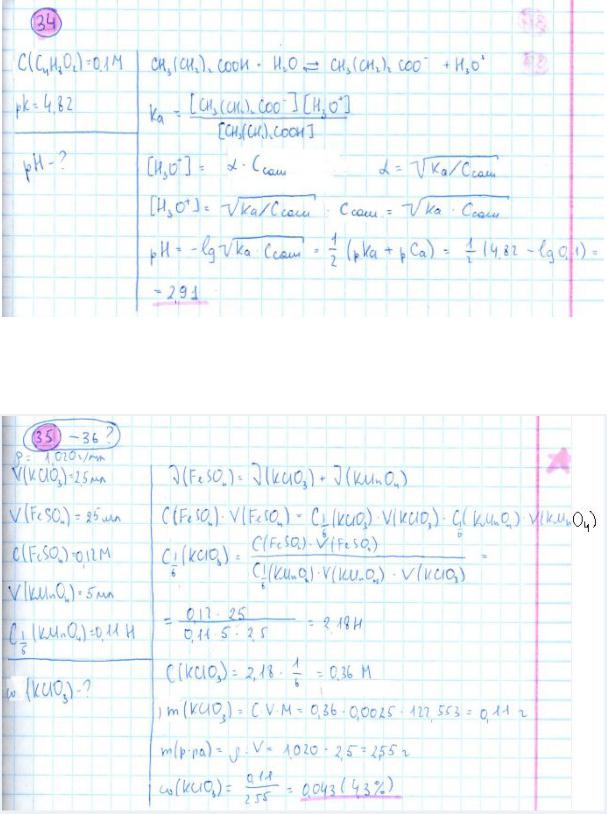 34
C(C₄H₈O₂)=0,1M
pk=4,82
pH-?
CH₃(CH₂)₂COOH + H₂O ⇌ CH₃(CH₂)₂COO⁻ + H₃O⁺
Ka = [CH₃(CH₂)₂COO⁻][H₃O⁺] / [CH₃(CH₂)₂COOH]
[H₃O⁺] = α · C α = √Ka/C
[H₃O⁺] = √Ka/C · C = √Ka · C
pH = -lg√Ka · C = 1/2 (pKa + pCa) = 1/2 (4,82 - lg0,1) =
= 2,91
35 -36?
ρ = 1,020 г/мл
V(KClO₃)=2,5мл
V(FeSO₄)=25мл
C(FeSO₄)=0,12M
V(KMnO₄)=5мл
C 1/5 (KMnO₄)=0,11 H
ω (KClO₃)-?
ν(FeSO₄) = ν(KClO₃) + ν(KMnO₄)
C(FeSO₄) · V(FeSO₄) = C 1/6 (KClO₃) · V(KClO₃) · C 1/5 (KMnO₄) · V(KMnO₄)
C 1/6 (KClO₃) = C(FeSO₄) · V(FeSO₄) / C 1/5 (KMnO₄) · V(KMnO₄) · V(KClO₃) =
= 0,12 · 25 / 0,11 · 5 · 2,5 = 2,18H
C(KClO₃) = 2,18 · 1/6 = 0,36 M
m(KClO₃) = C·V·M = 0,36 · 0,0025 · 122,553 = 0,11 г
m(р-ра) = ρ · V = 1,020 · 2,5 = 2,55 г
ω(KClO₃) = 0,11 / 2,55 = 0,043 (4,3%)